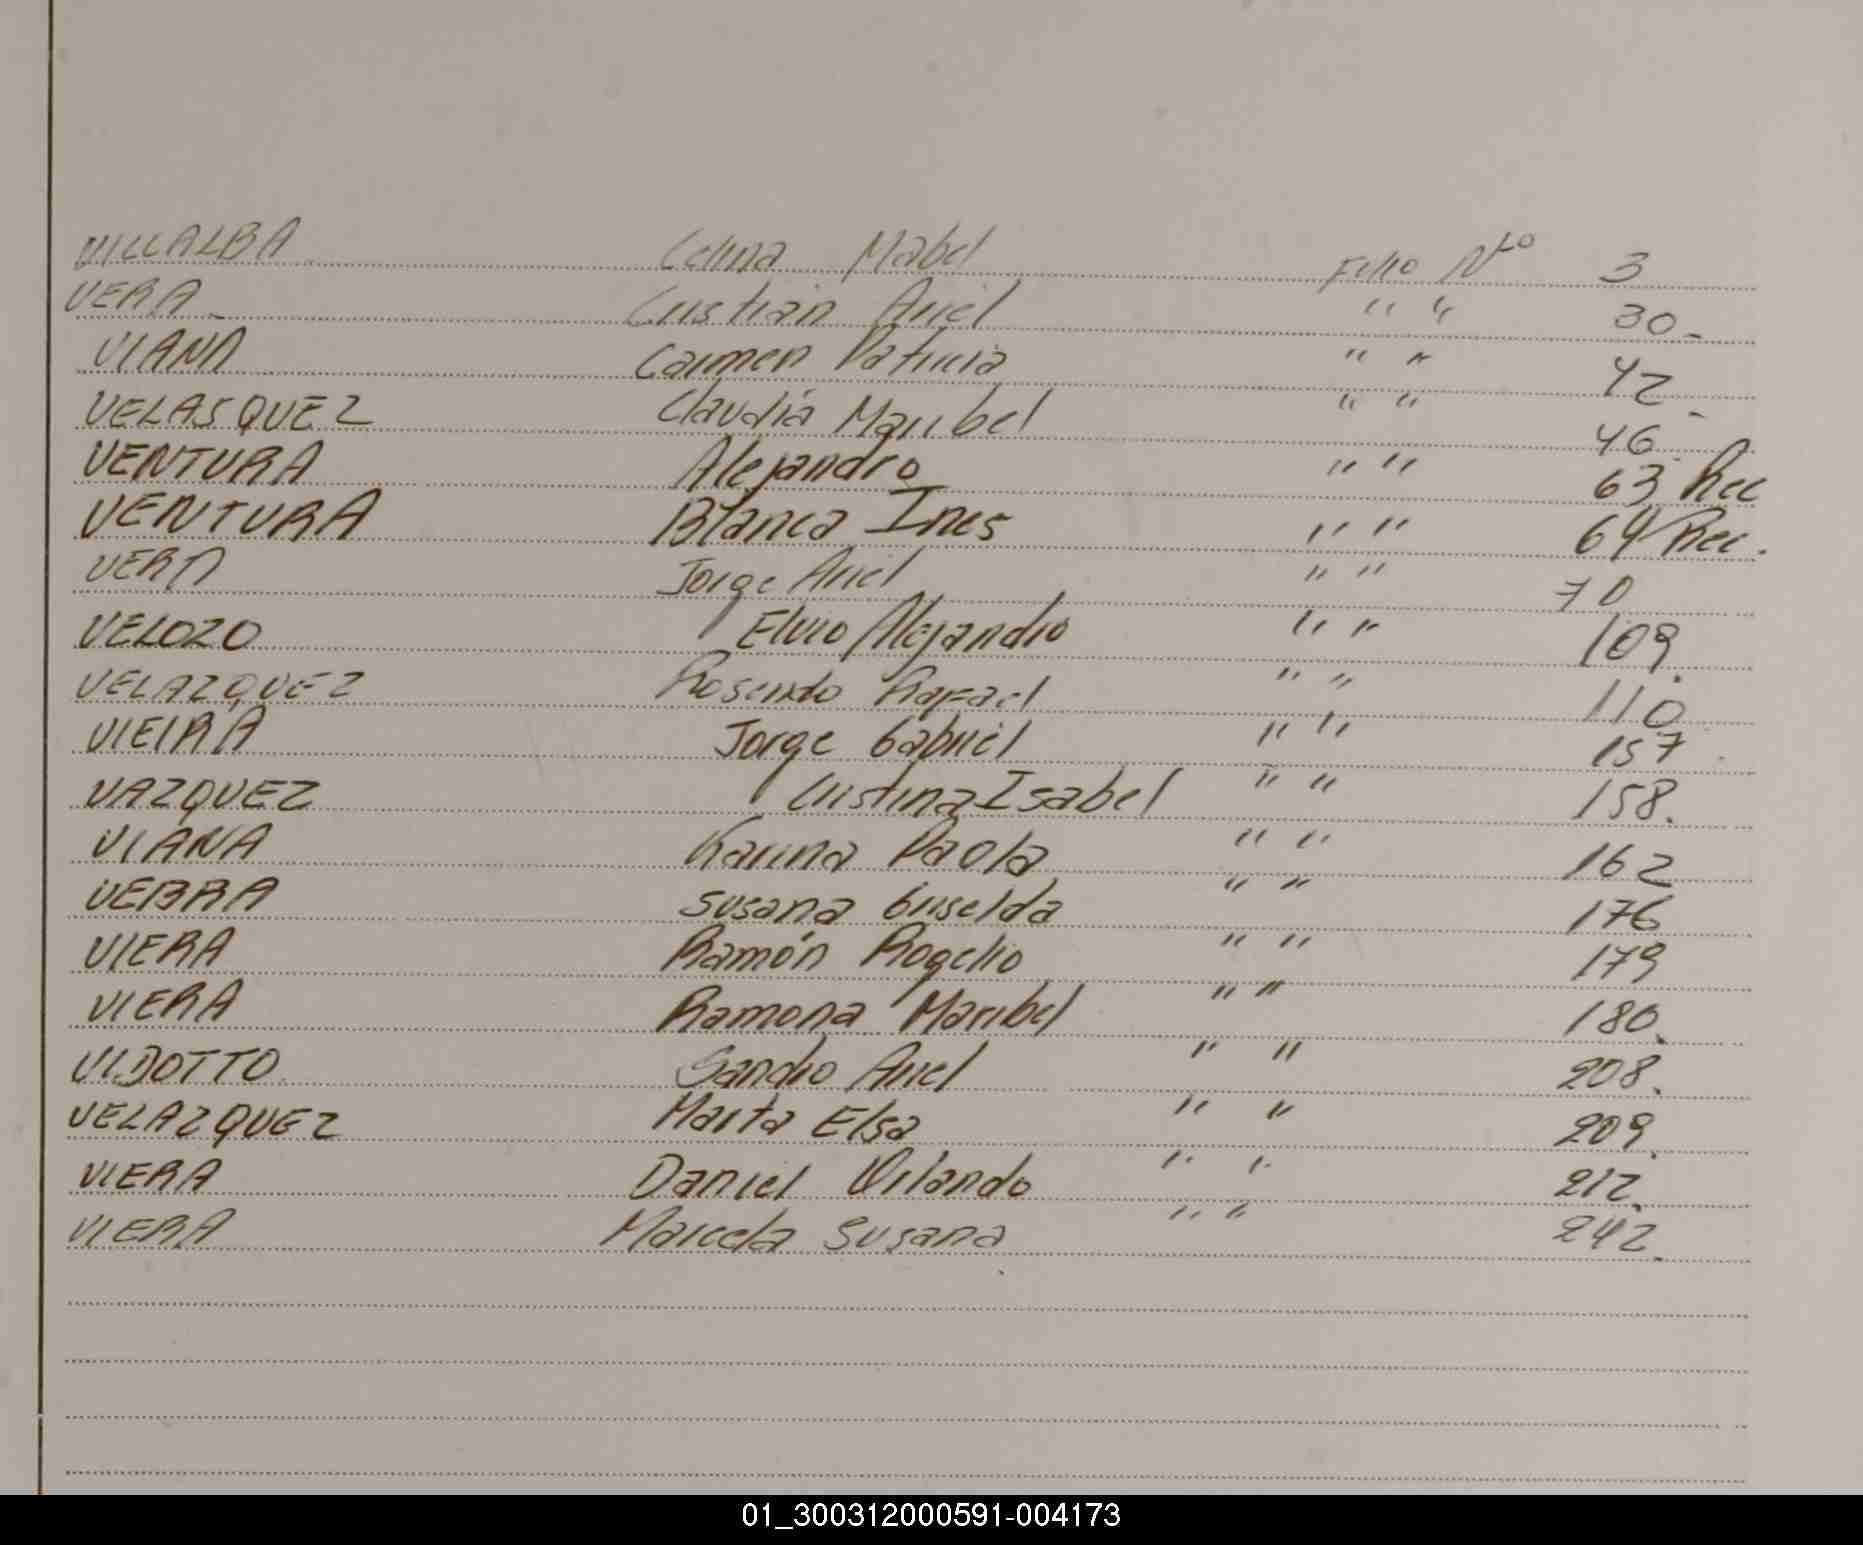 VILLALBA Celina Mabel Folio Nto 3
VERA - Cristian Ariel " " 30-
VIANA Carmen Patricia " " 42
VELASQUEZ Claudia Maribel " " 46
VENTURA Alejandro " " 63 Rec
VENTURA Blanca Ines " " 64 Rec.
VERA Jorge Ariel " " 70
VELOZO Elvio Alejandro " " 109.
VELAZQUEZ Rosendo Rafael " " 110
VIEIRA Jorge Gabriel " " 157
VAZQUEZ Cristina Isabel " " 158.
VIANA Karina Paola " " 162
VEBRA Susana Griselda " " 176
VIERA Ramón Rogelio " " 179
VIERA Ramona Maribel " " 180.
VIDOTTO Sandro Ariel " " 208.
VELAZQUEZ Marta Elsa " " 209.
VIERA Daniel Orlando " " 212.
VIERA Marcela Susana " " 242.
01_300312000591-004173